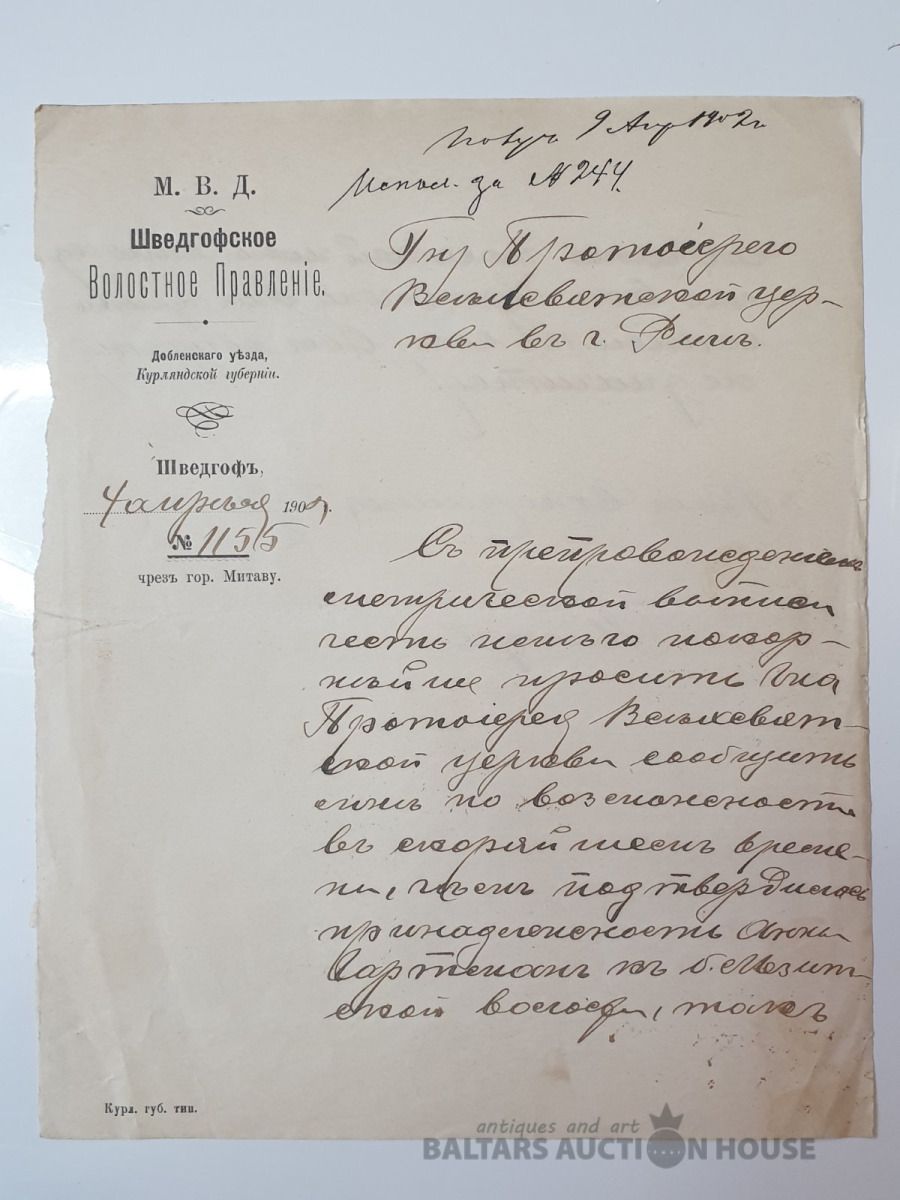 Получ 9 Апр 1902 г
Испол. за № 244.
М. В. Д.
Шведгофское
Волостное Правленіе.
Добленскаго уѣзда,
Курляндской губерніи.
Шведгофъ,
4 апрѣля 1902 г.
№ 1155
чрезъ гор. Митаву.
Гну Протоіерею
Всѣхсвятской цер-
кви въ г. Ригѣ.
Съ препровожденіемъ
метрической выписи
честь имѣю покор-
нѣйше просить Гна
Протоіерея Всѣхсвят-
ской церкви сообщить
мнѣ по возможности
въ скорѣйшемъ време-
ни, чѣмъ подтвердилось
принадлежность Анны
къ б.
ской волости, такъ
Курл. губ. тип.
antiques and art
BALTARS AUCTION HOUSE